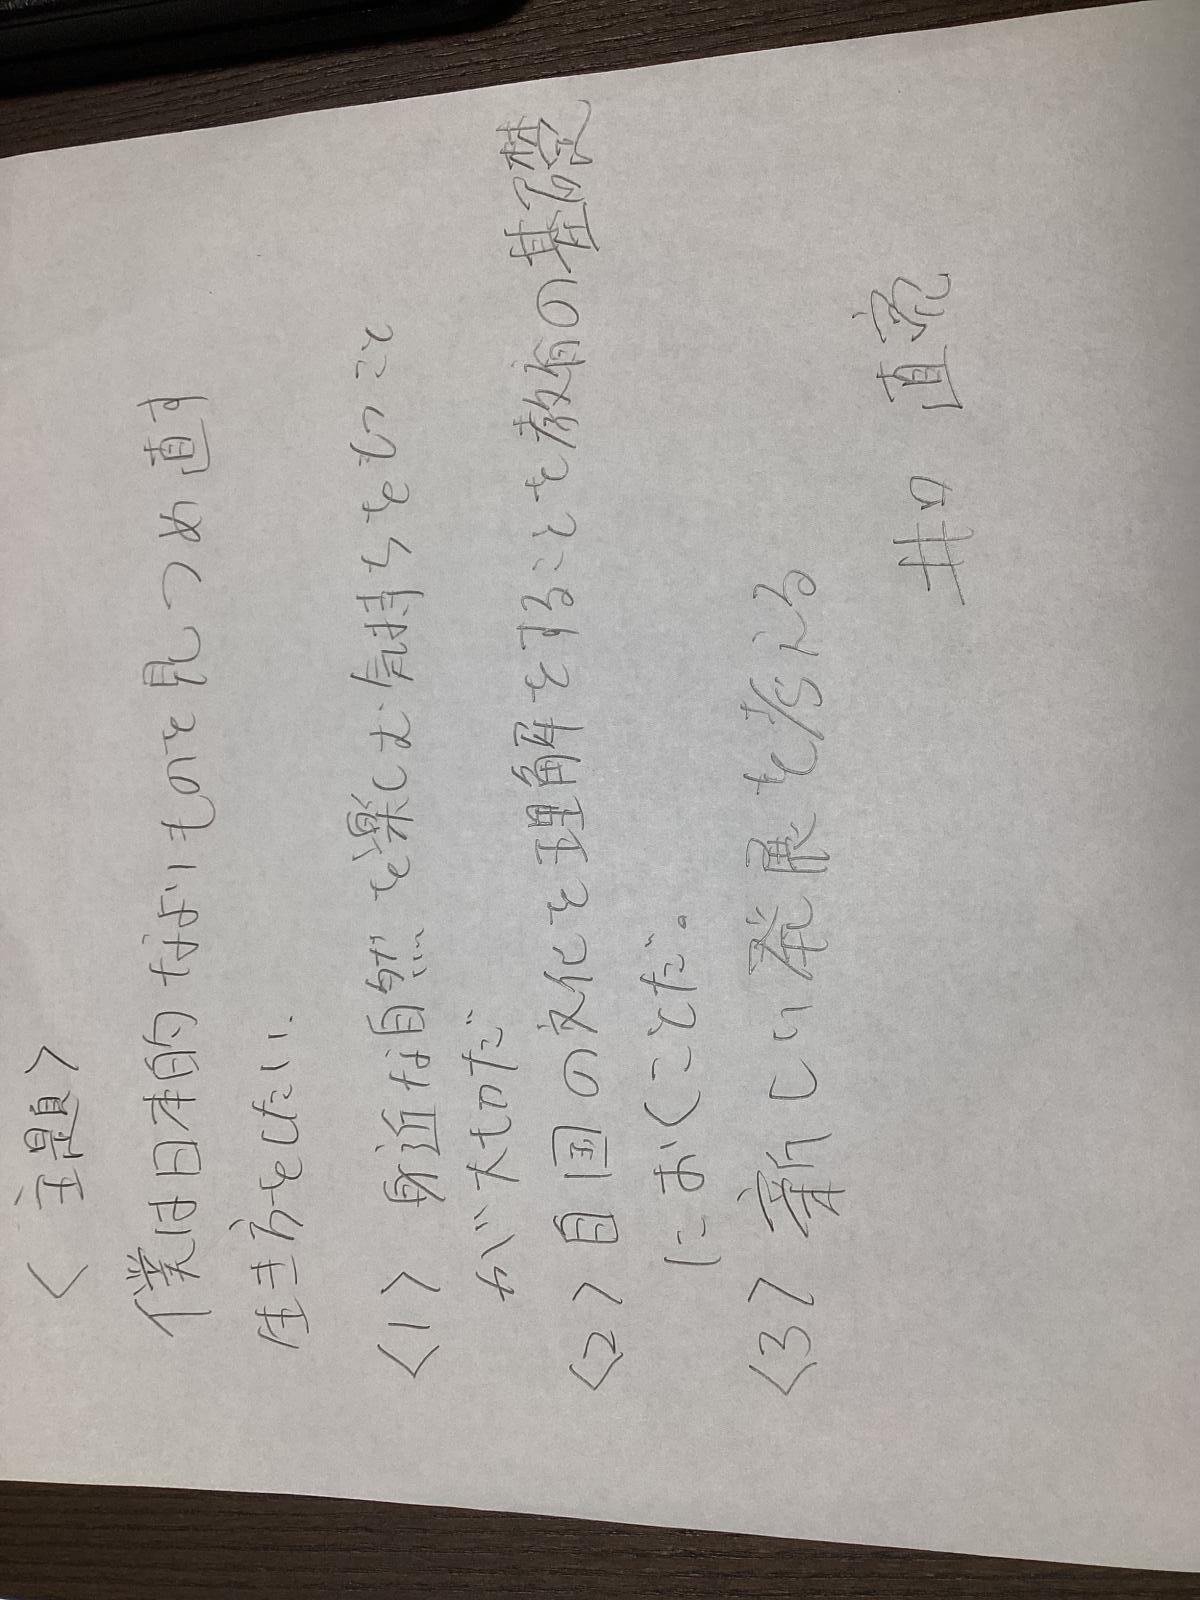 <主題>
僕は日本的なよいものを見つめ直す
生き方をしたい、
<1> 身近な自然を楽しむ気持ちをもつこと
が大切だ
<2> 自国の文化を理解をすることを教育の基礎
におくことだ。
<3> 新しい発展を考える
井口 直亮